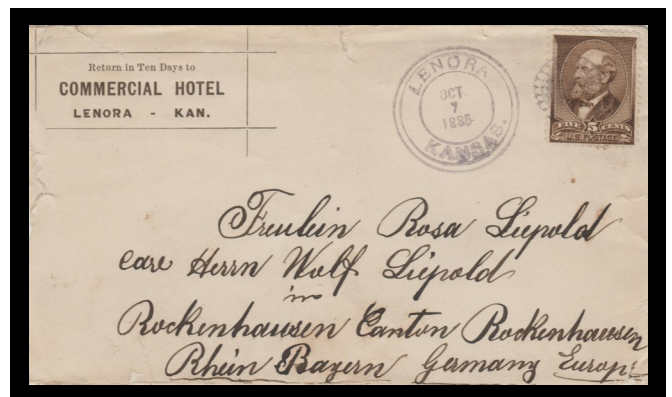 Return in Ten Days to
COMMERCIAL HOTEL
LENORA - KAN.
LENORA
OCT
7
1885
KANSAS.
FIVE 5 CENTS
U.S. POSTAGE
Freulein Rosa Liepold
care Herrn Wolf Liepold
in
Rockenhausen Canton Rockenhausen
Rhein Bayern Germany Europe